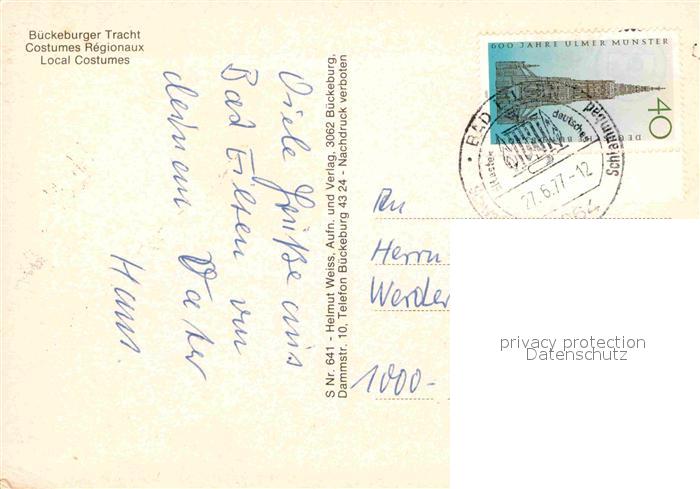 Bückeburger Tracht
Costumes Régionaux
Local Costumes
Viele Grüße aus
Bad Eilsen von
deinem Vater
Hans.
S Nr. 641 - Helmut Weiss, Aufn. und Verlag, 3062 Bückeburg,
Dammstr. 10, Telefon Bückeburg 43 24 - Nachdruck verboten
600 JAHRE ULMER MÜNSTER
40
DEUTSCHE BUNDESPOST
BAD
deutsches
Schlammbad
27.6.77-12
An
Herrn
Werder
1000-
privacy protection
Datenschutz